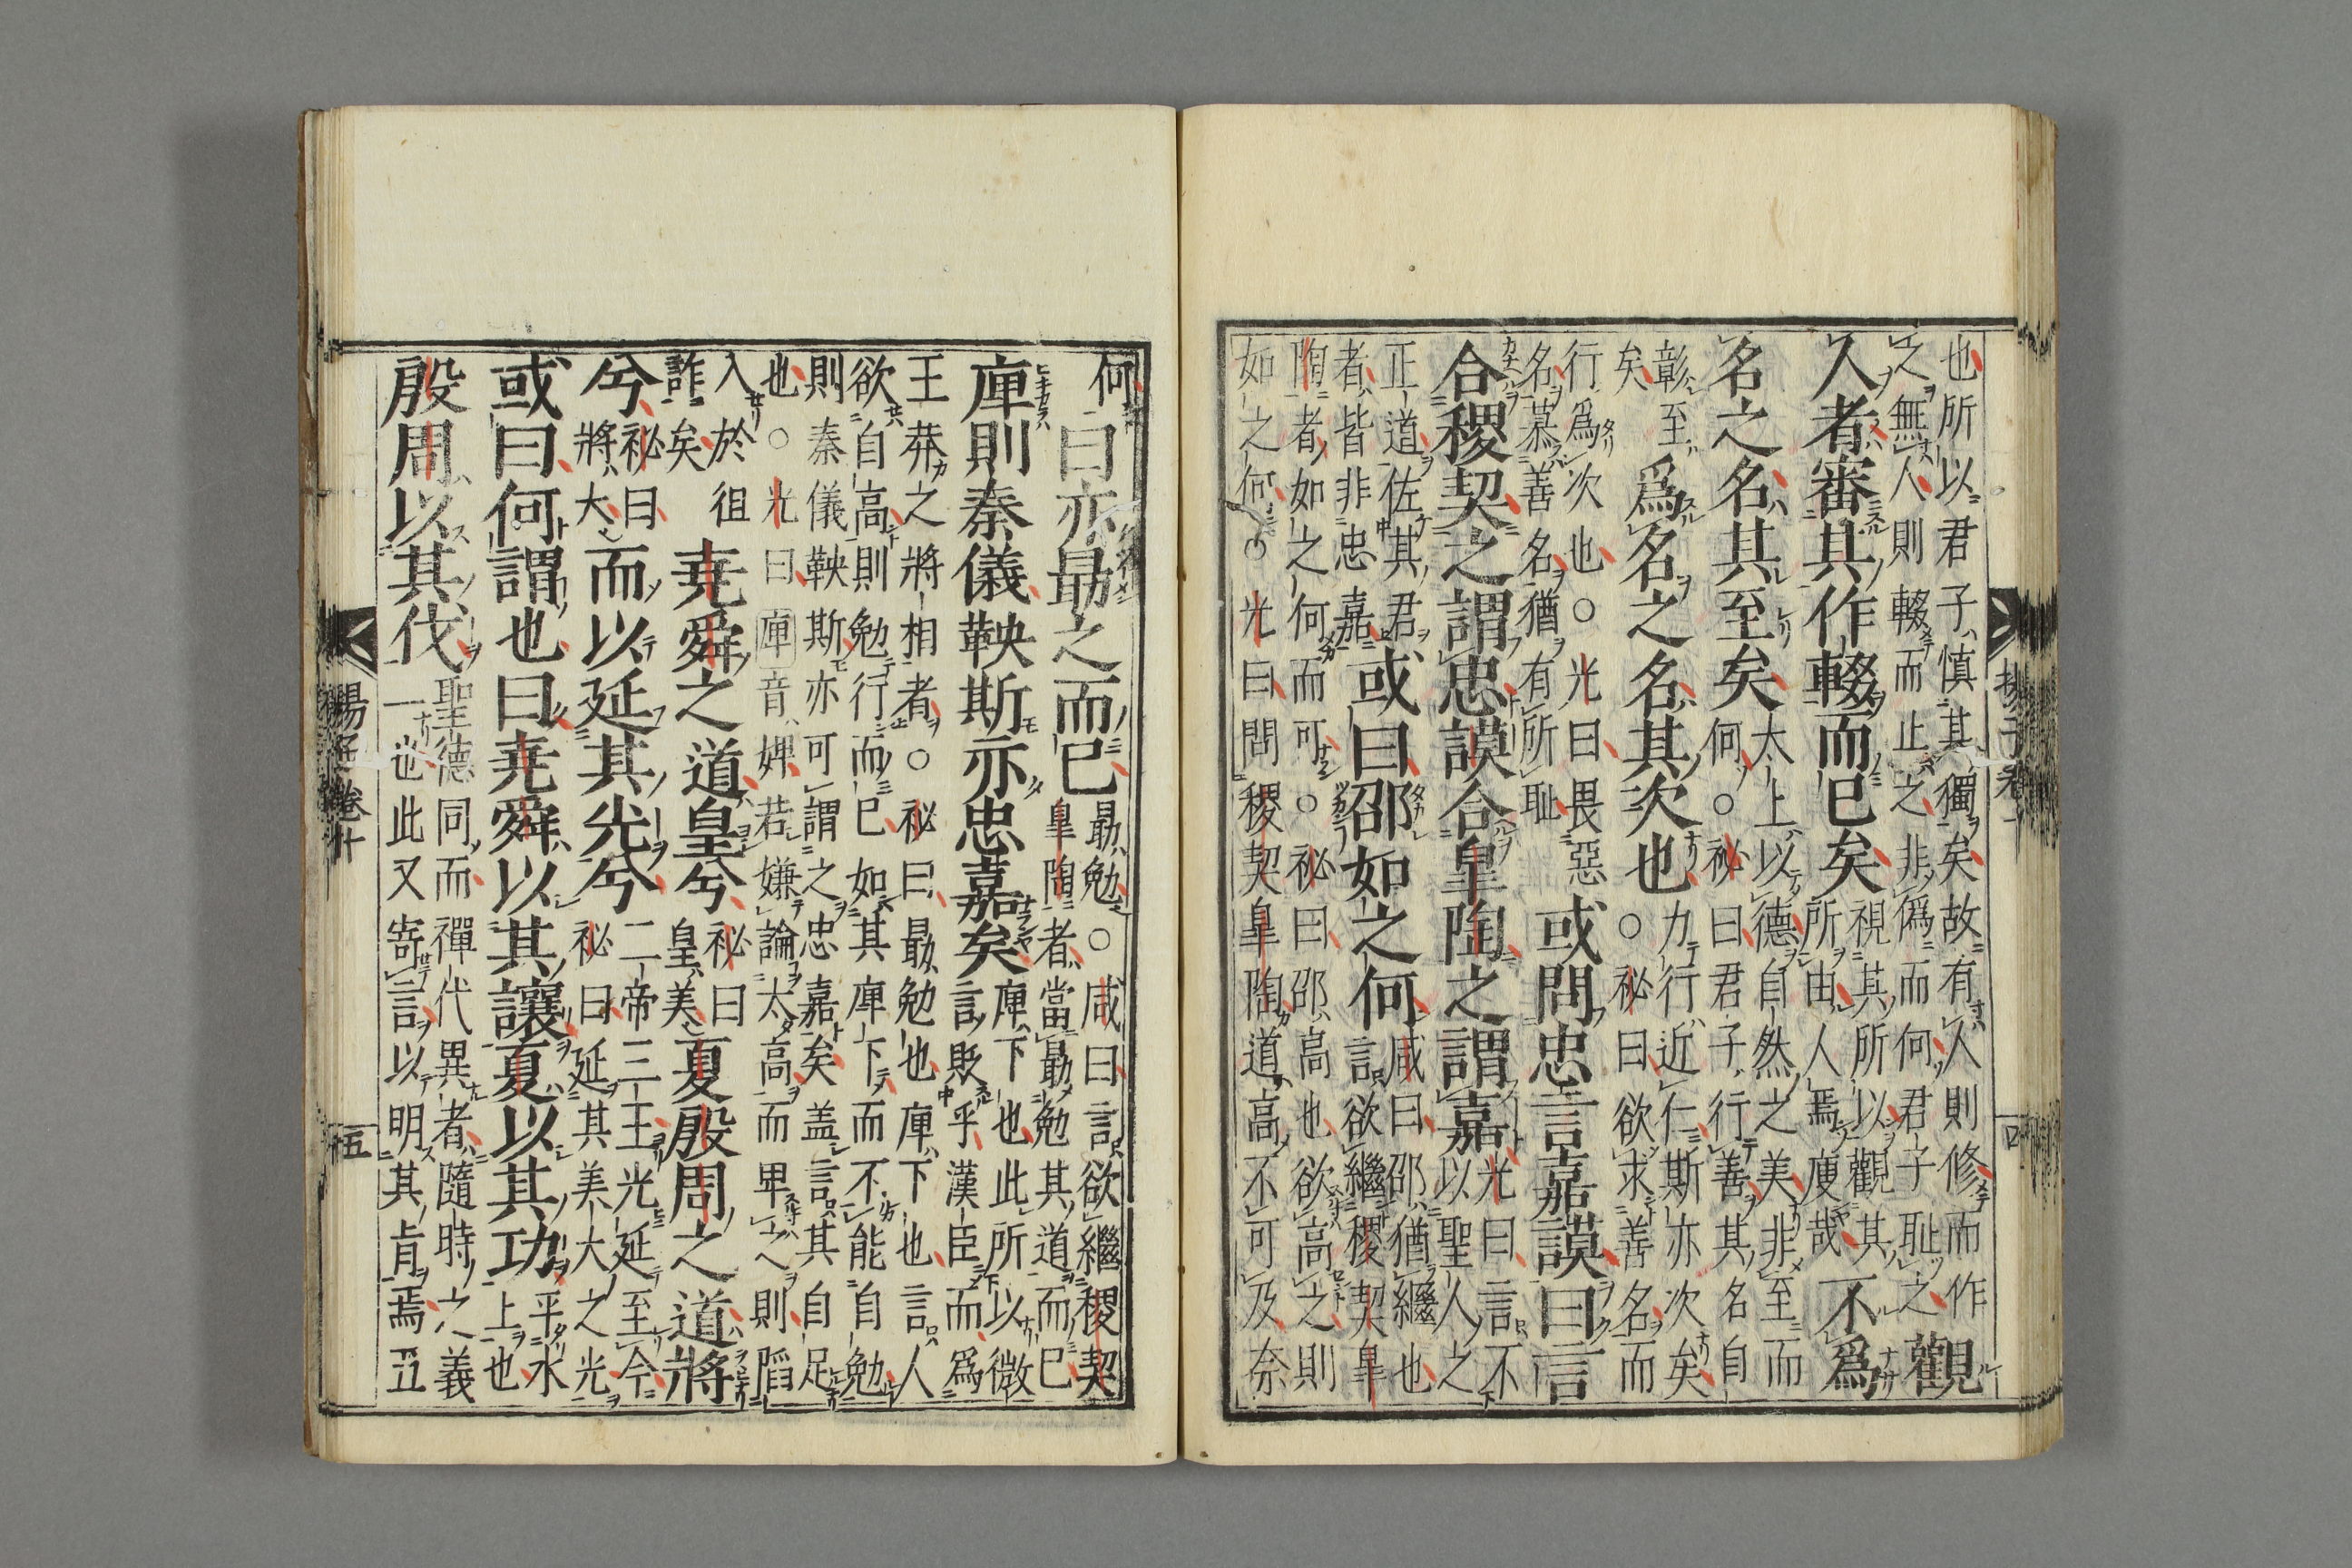 也所以君子慎其獨矣故有人則修而作
之無人則輟而止之非偽而何君子恥之
觀
人者審其作輟而已矣
視其所以觀其
所由人焉廋哉
不爲
名之名其至矣
太上以德自然之美非至而
何○祕曰君子行善其名自
彰至
矣
爲名之名其次也
力行近仁斯亦次矣
○祕曰欲求善名而
行爲次也○光曰畏惡
名慕善名猶有所恥
或問忠言嘉謨曰言
合稷契之謂忠謨合臯陶之謂嘉
光曰言不
以聖人之
正道佐其君
者皆非忠嘉
或曰邵如之何
咸曰邵猶繼也
言欲繼稷契臯
陶者如之何而可○祕曰邵高也欲高之則
如之何○光曰問稷契臯陶道高不可及奈
何
曰亦勗之而已
勗勉○咸曰言欲繼稷契
臯陶者當勗勉其道而已
庳則秦儀鞅斯亦忠嘉矣
庳下也此所以微
言敗乎漢臣而爲
王莽之將相者○祕曰勗勉也庳下也言人
欲自高則勉行而已如其庳下而不能自勉
則秦儀鞅斯亦可謂之忠嘉矣盖言其自足
也○光曰庳音婢若嫌論太高而卑之則陷
入於徂
詐矣
堯舜之道皇兮
祕曰
皇美
夏殷周之道將
兮
祕曰
將大
而以延其光兮
二帝三王光延至今
祕曰延其美大之光
或曰何謂也曰堯舜以其讓夏以其功
平水
上也
殷周以其伐
聖德同而禪代異者隨時之義
一也此又寄言以明其旨焉五
揚子卷十
五